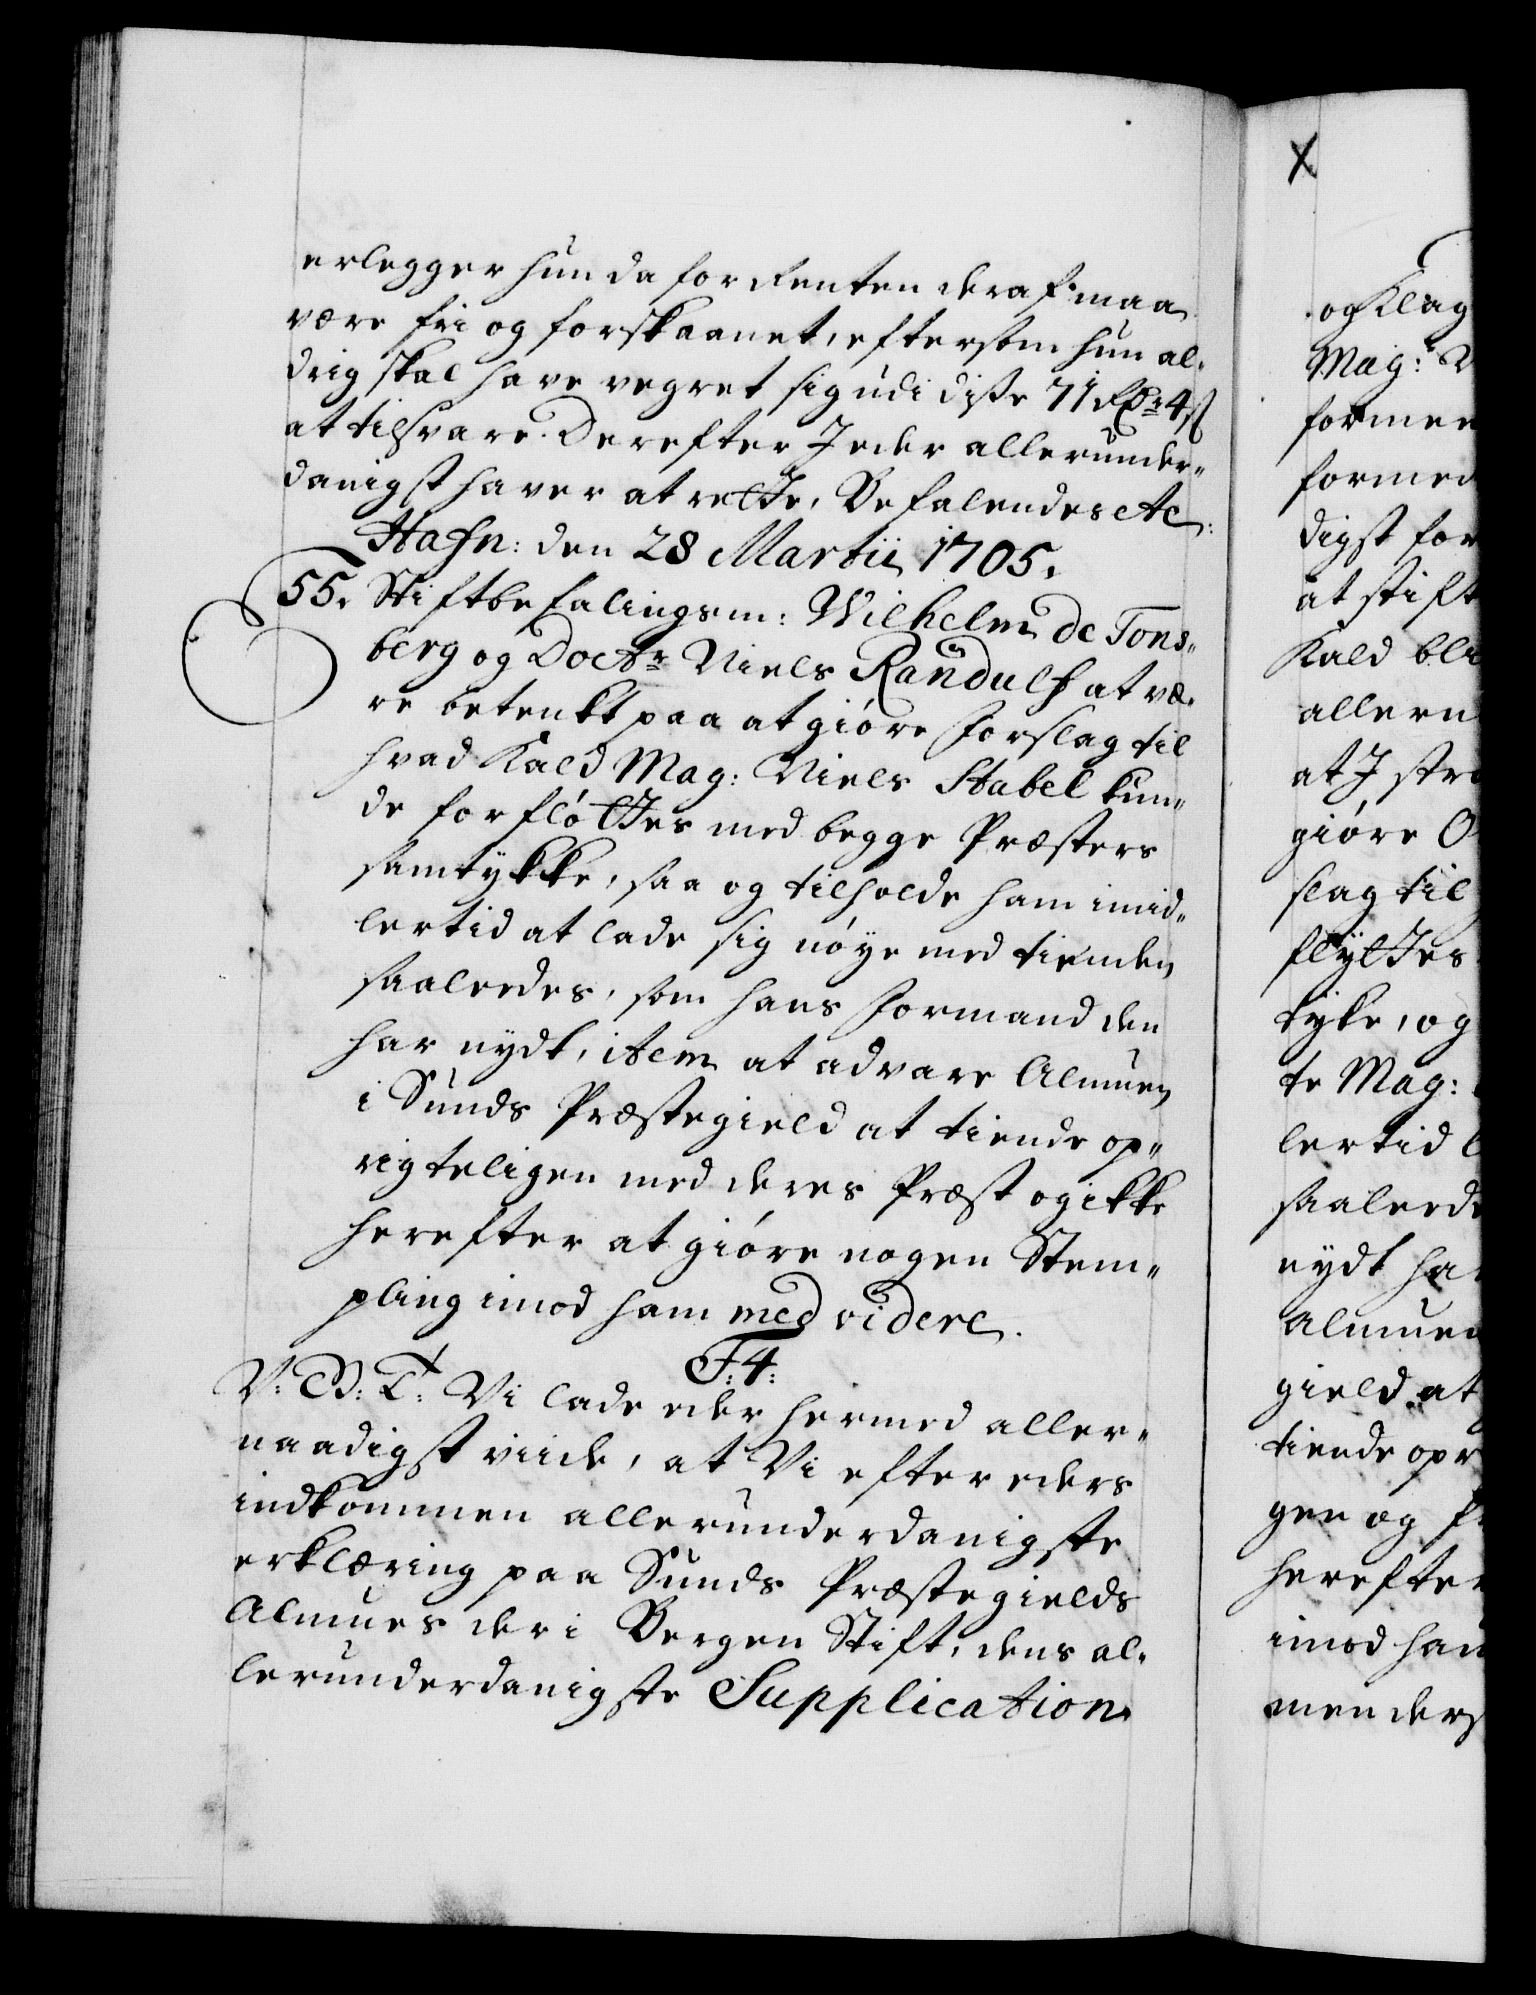 erlegger hun da for Renten deraf maa
være fri og forskaanet, eftersom hun al-
drig skal have vegret sig udi disse 71 Rdr 4 ß
at tilsvare. Derefter I eder allerunder-
danigst haver at rette, Befalendes etc:
Hafn: den 28 Martii 1705.
55. Stiftbefalingsm: Wilhelm de Tons-
berg og Doctr Niels Randulf at væ-
re betenkt paa at giøre Forslag til
hvad Kald Mag: Niels Stabel kun-
de forfløttes med begge Præsters
samtykke, saa og tilholde ham imid-
lertid at lade sig nøye med tienden
saaledes, som hans Formand den
har nydt, item at advare Almuen
i Sunds Præstegield at tiende op-
rigteligen med deres Præst og ikke
herefter at giøre nogen Stem-
pling imod ham med videre.
F: 4:
V: G: T: Vi lade eder hermed aller-
naadigst viide, at Vi efter eders
indkommen allerunderdanigste
erklæring paa Sunds Præstegields
Almues der i Bergen Stift, dens al-
lerunderdanigste Supplication
x
og Klag
Mag:
formee
formed
digst for
at stift
Kald bli
allern
at I stra
giøre
slag til
flyttes
tyke, og
te Mag:
lertid
saaled
nydt ha
Almuen
gield at
tiende opr
gen og
herefter
imod ham
men ders